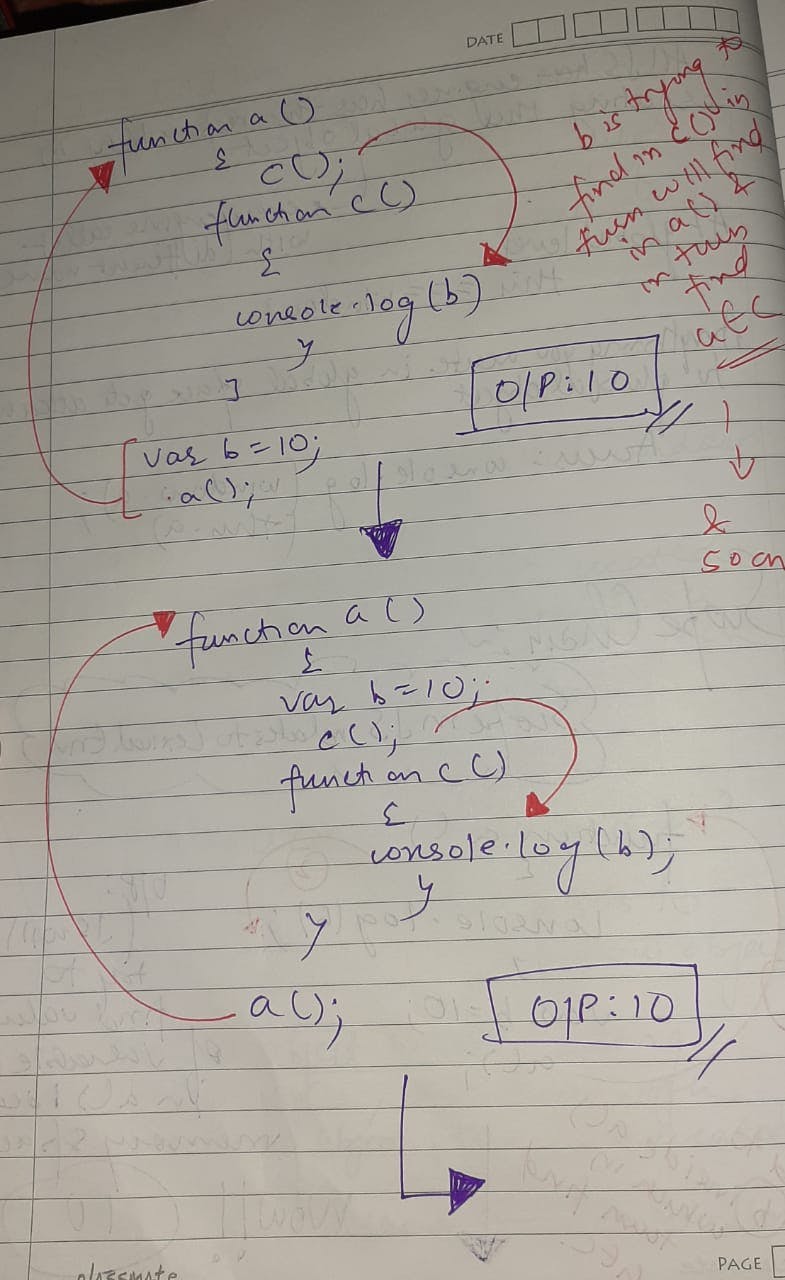 DATE
function a()
{
c();
function c()
{
console.log(b)
}
}
var b = 10;
a();
O/P: 10
b is trying to
find in c() in
turn will find
in a() &
in turn
find
GEC
&
so on
function a()
{
var b = 10;
c();
function c()
{
console.log(b);
}
}
a();
O/P: 10
classmate
PAGE